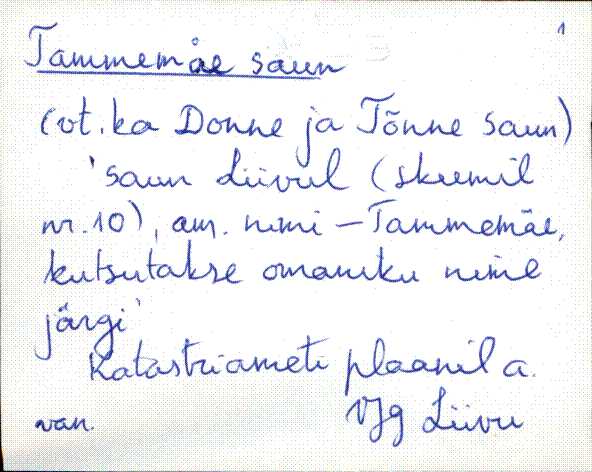 1
Tammemäe saun
(vt. ka Donne ja Tõnne saun)
'saun Liivul (skeemil
nr. 10), am. nimi – Tammemäe,
kutsutakse omaniku nime
järgi'
Katastriameti plaanil a.
van. Vjg Liivu